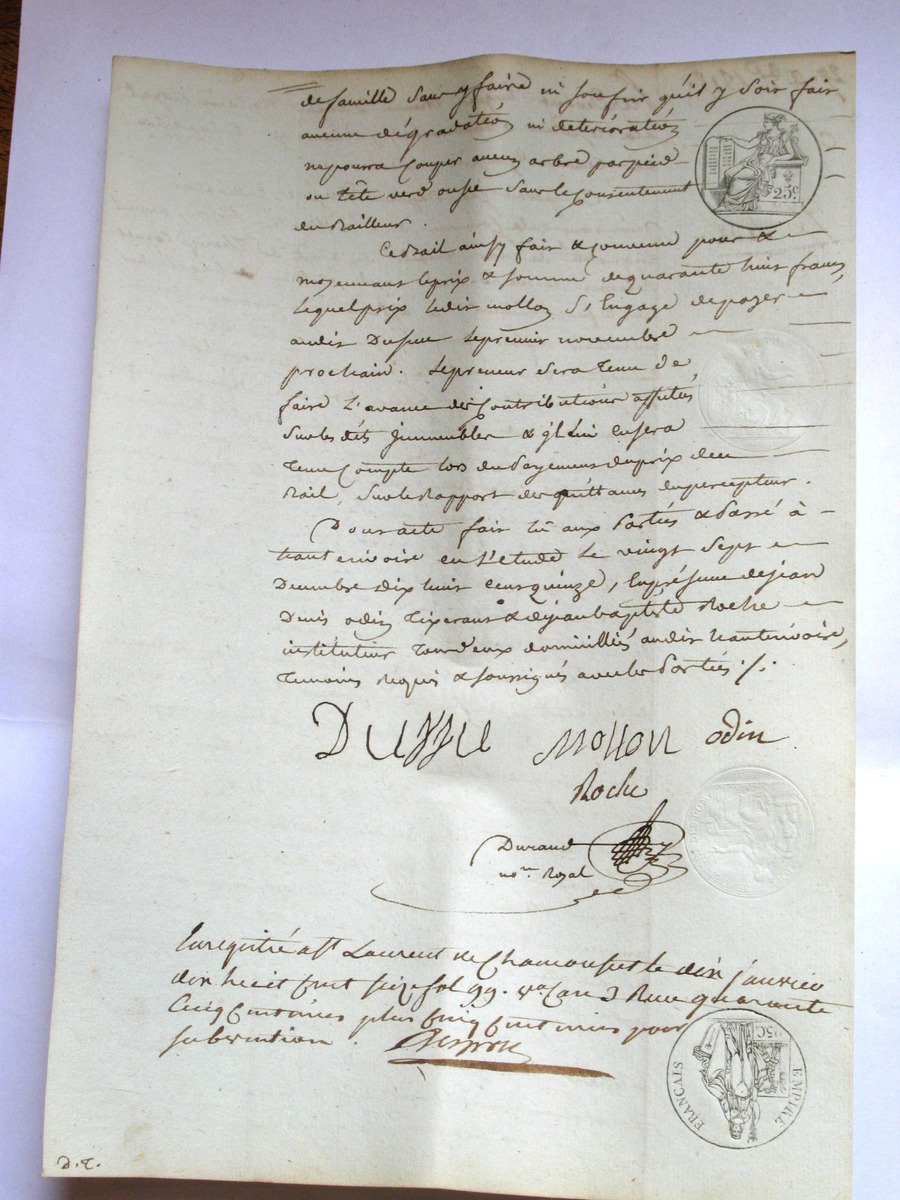 de famille sans y faire ni soufrir qu'il y soit fait
aucune dégradation ni détérioration
ne pourra Couper aucun arbre par pied
ou tête verd ou sec sans le Consentement
du Bailleur.
Ce Bail ainsy fait & convenu pour &
moyennant le prix & somme de quarante huit francs,
Lequel prix ledit mollon S'Engage de payer
audit Dussuc le premier novembre
prochain. Le preneur sera Tenu de
faire L'avance des Contributions affectés
Sur les dits Immeubles & il Lui en sera
Tenu Compte lors du payement du prix du
Bail, Sur le Rapport des quittances du percepteur.
Dont acte fait lû aux Parties & Passé à
hauterivoire en L'etude Le vingt Sept
Decembre dix huit Cent quinze, En présence de jean
Denis odin Tixerant & de jean baptiste Roche
instituteur Tous deux domiciliés audit hauterivoire,
Temoins Requis & soussignés avec les Parties ./.
25c
Dussuc mollon odin
Roche
Durand
no.re Royal
Enregistré a St Laurent de Chamousset le dix janvier
dix huit cent seize fol 99. vo Case 3 Recu quarante
Cinq Centimes plus Cinq Centimes pour
subvention.
EMPIRE FRANCAIS
25C
D.T.